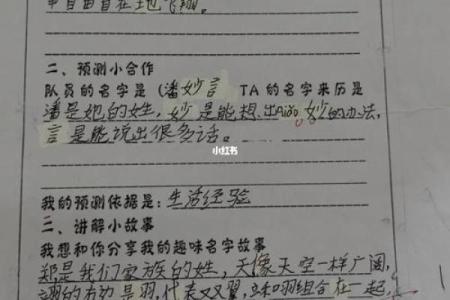 中自由自在地飞翔。
二、预测小合作
队员的名字是(潘妙言 TA 的名字来历是
潘是她的姓，妙是能想出miào妙的办法，
言是能说出很多话。
小红书
我的预测依据是：生活经验
二、讲解小故事
我想和你分享我的趣味名字故事
郑是我们家族的姓，天像天空一样广阔，
翊的右边是羽，代表双翼，立和羽组合在一起，